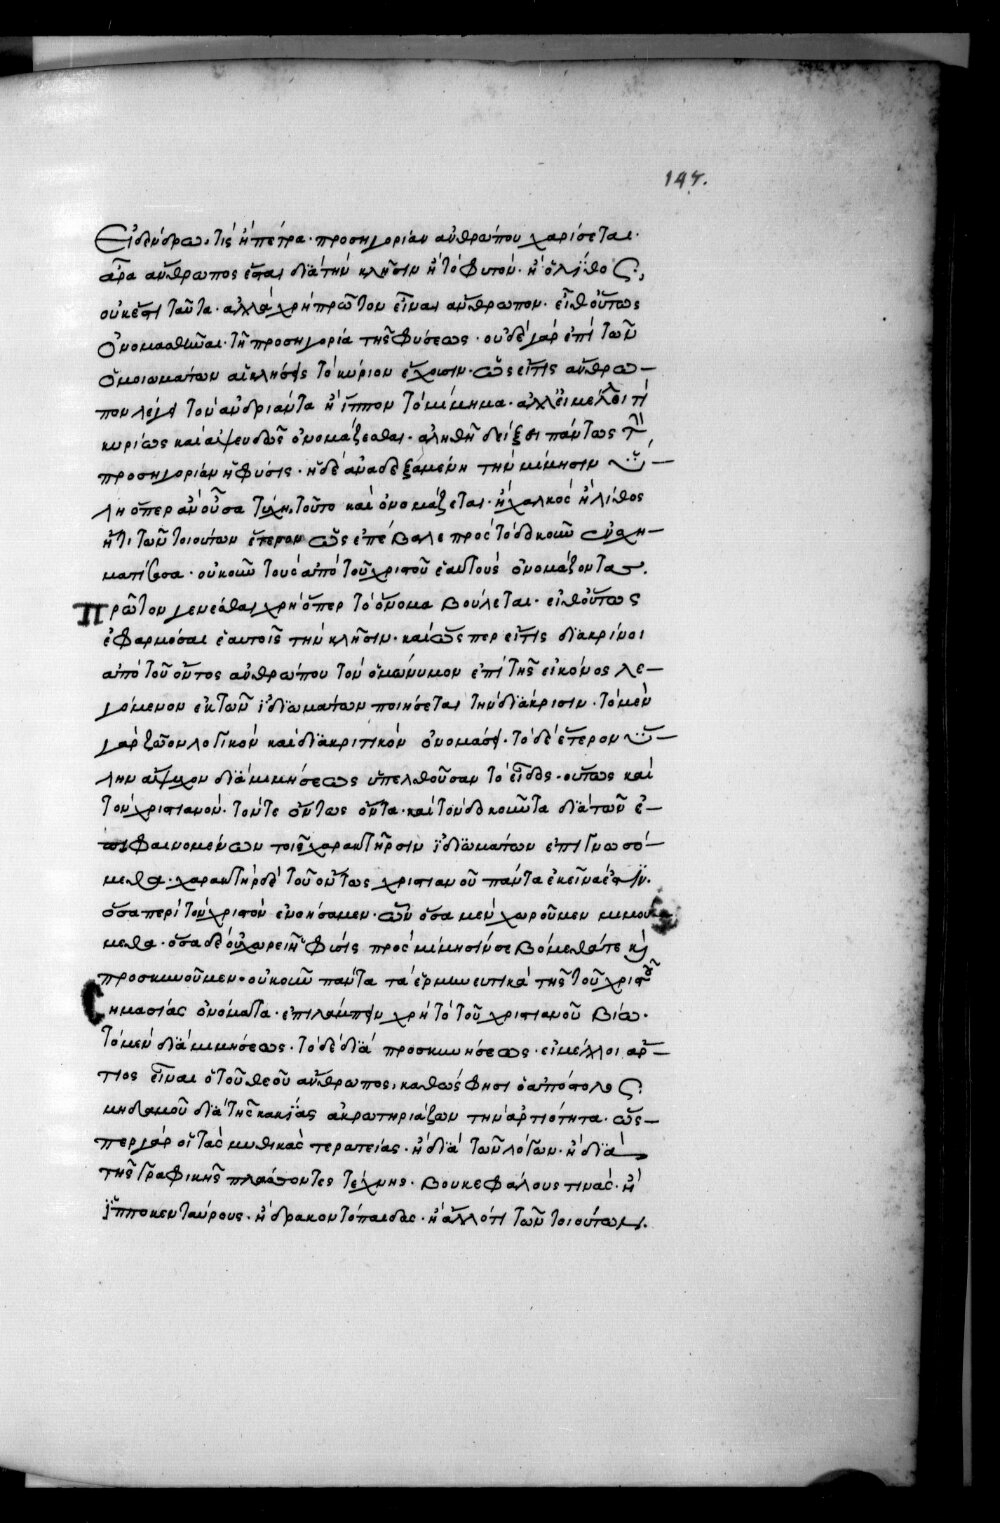 147.
Εἰ δένδρω τίς ἢ πέτρα· προσηγορίαν ἀνθρώπου χαρίσεται·
ἆρα ἄνθρωπος ἔσται διὰ τὴν κλῆσιν ἢ τὸ φυτόν· ἢ ὁ λίθος;
οὐκ ἔστι ταῦτα· ἀλλὰ χρὴ πρῶτον εἶναι ἄνθρωπον· εἶθ οὕτως
ὀνομασθῆναι· τῆ προσηγορία τῆς φύσεως· οὐδὲ γὰρ ἐπὶ τῶν
ὁμοιωμάτων αἱ κλήσεις τὸ κύριον ἔχουσιν· ὡς εἴ τις ἄνθρω-
πον λέγει τὸν ἀνδριάντα ἢ ἵππον τὸ μίμημα· ἀλλ εἰ μέλλοι τί
κυρίως καὶ ἀψευδῶς ὀνομάζεσθαι· ἀληθῆ δείξει πάντως τὴν
προσηγορίαν ἡ φύσις· ἡ δὲ ἀναδεξαμένη τὴν μίμησιν ὕ-
λη ὅπερ ἂν οὖσα τύχη, τοῦτο καὶ ὀνομάζεται· ἢ χαλκὸς ἢ λίθος
ἤ τι τῶν τοιούτων ἕτερον ὡς ἐπέβαλε πρὸς τὸ δοκοῦν σχη-
ματίσασα· οὐκοῦν τοὺς ἀπὸ τοῦ χριστοῦ ἑαυτοὺς ὀνομάζοντας.
Πρῶτον γενέσθαι χρὴ ὅπερ τὸ ὄνομα βούλεται· εἶθ οὕτως
ἐφαρμόσαι ἑαυτοῖς τὴν κλῆσιν· καὶ ὥσπερ εἴ τις διακρίνοι
ἀπὸ τοῦ ὄντος ἀνθρώπου τὸν ὁμώνυμον ἐπὶ τῆς εἰκόνος λε-
γόμενον ἐκ τῶν ἰδιωμάτων ποιήσεται τὴν διάκρισιν· τὸ μὲν
γὰρ ζῶον λογικὸν καὶ διακριτικὸν ὀνομάσει· τὸ δὲ ἕτερον ὕ-
λην ἄψυχον διὰ μιμήσεως ὑπελθοῦσαν τὸ εἶδος· οὕτως καὶ
τὸν χριστιανόν· τόν τε ὄντως ὄντα· καὶ τὸν δοκοῦντα διὰ τῶν ἐ-
πιφαινομένων τοῖς χαρακτῆρσιν ἰδιωμάτων ἐπιγνωσό-
μεθα· χαρακτὴρ δὲ τοῦ ὄντως χριστιανοῦ πάντα ἐκεῖνα ἐστὶν.
ὅσα περὶ τὸν χριστὸν ἐνοήσαμεν· ὧν ὅσα μὲν χωροῦμεν μιμού-
μεθα· ὅσα δὲ οὐ χωρεῖ ἡ φύσις πρὸς μίμησιν σεβόμεθά τε καὶ
προσκυνοῦμεν· οὐκοῦν πάντα τὰ ἑρμηνευτικὰ τῆς τοῦ χριστοῦ
σημασίας ὀνόματα· ἐπιλάμπειν χρὴ τὸ τοῦ χριστιανοῦ βίω·
τὸ μὲν διὰ μιμήσεως· τὸ δὲ διὰ προσκυνήσεως· εἰ μέλλοι ἄρ-
τιος εἶναι ὁ τοῦ θεοῦ ἄνθρωπος, καθώς φησι ὁ ἀπόστολος·
μηδαμοῦ διὰ τῆς κακίας ἀκρωτηριάζων τὴν ἀρτιότητα· ὥσ-
περ γὰρ οἱ τὰς μυθικὰς τερατείας· ἢ διὰ τῶν λόγων· ἢ διὰ
τῆς γραφικῆς πλάσσοντες τέχνης· βουκεφάλους τινάς· ἢ
ἱπποκενταύρους· ἢ δρακοντόποδας· ἢ ἄλλό τι τῶν τοιούτων.